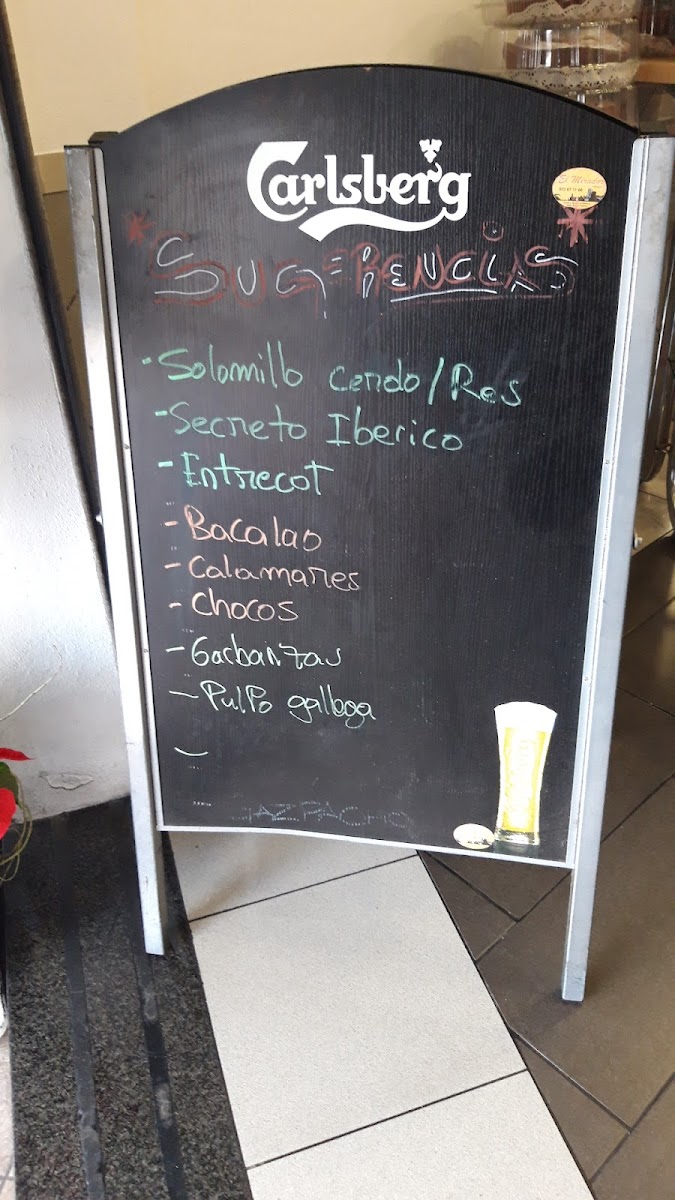 Carlsberg
El Mirador
SUGERENCIAS
- Solomillo Cerdo/Res
- Secreto Iberico
- Entrecot
- Bacalao
- Calamares
- Chocos
- Garbanzas
- Pulpo gallega
-
GAZPACHO